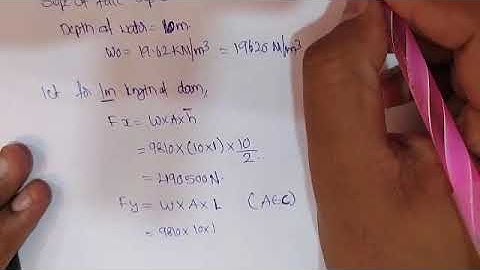 Depth of water = 10m
W0 = 19.62 KN/m³ = 19620 N/m³
let for 1m length of dam,
Fx = W×A×h̄
= 9810×(10×1)×10/2
= 490500N.
Fy = W×A×L (AEC)
= 9810×10×1